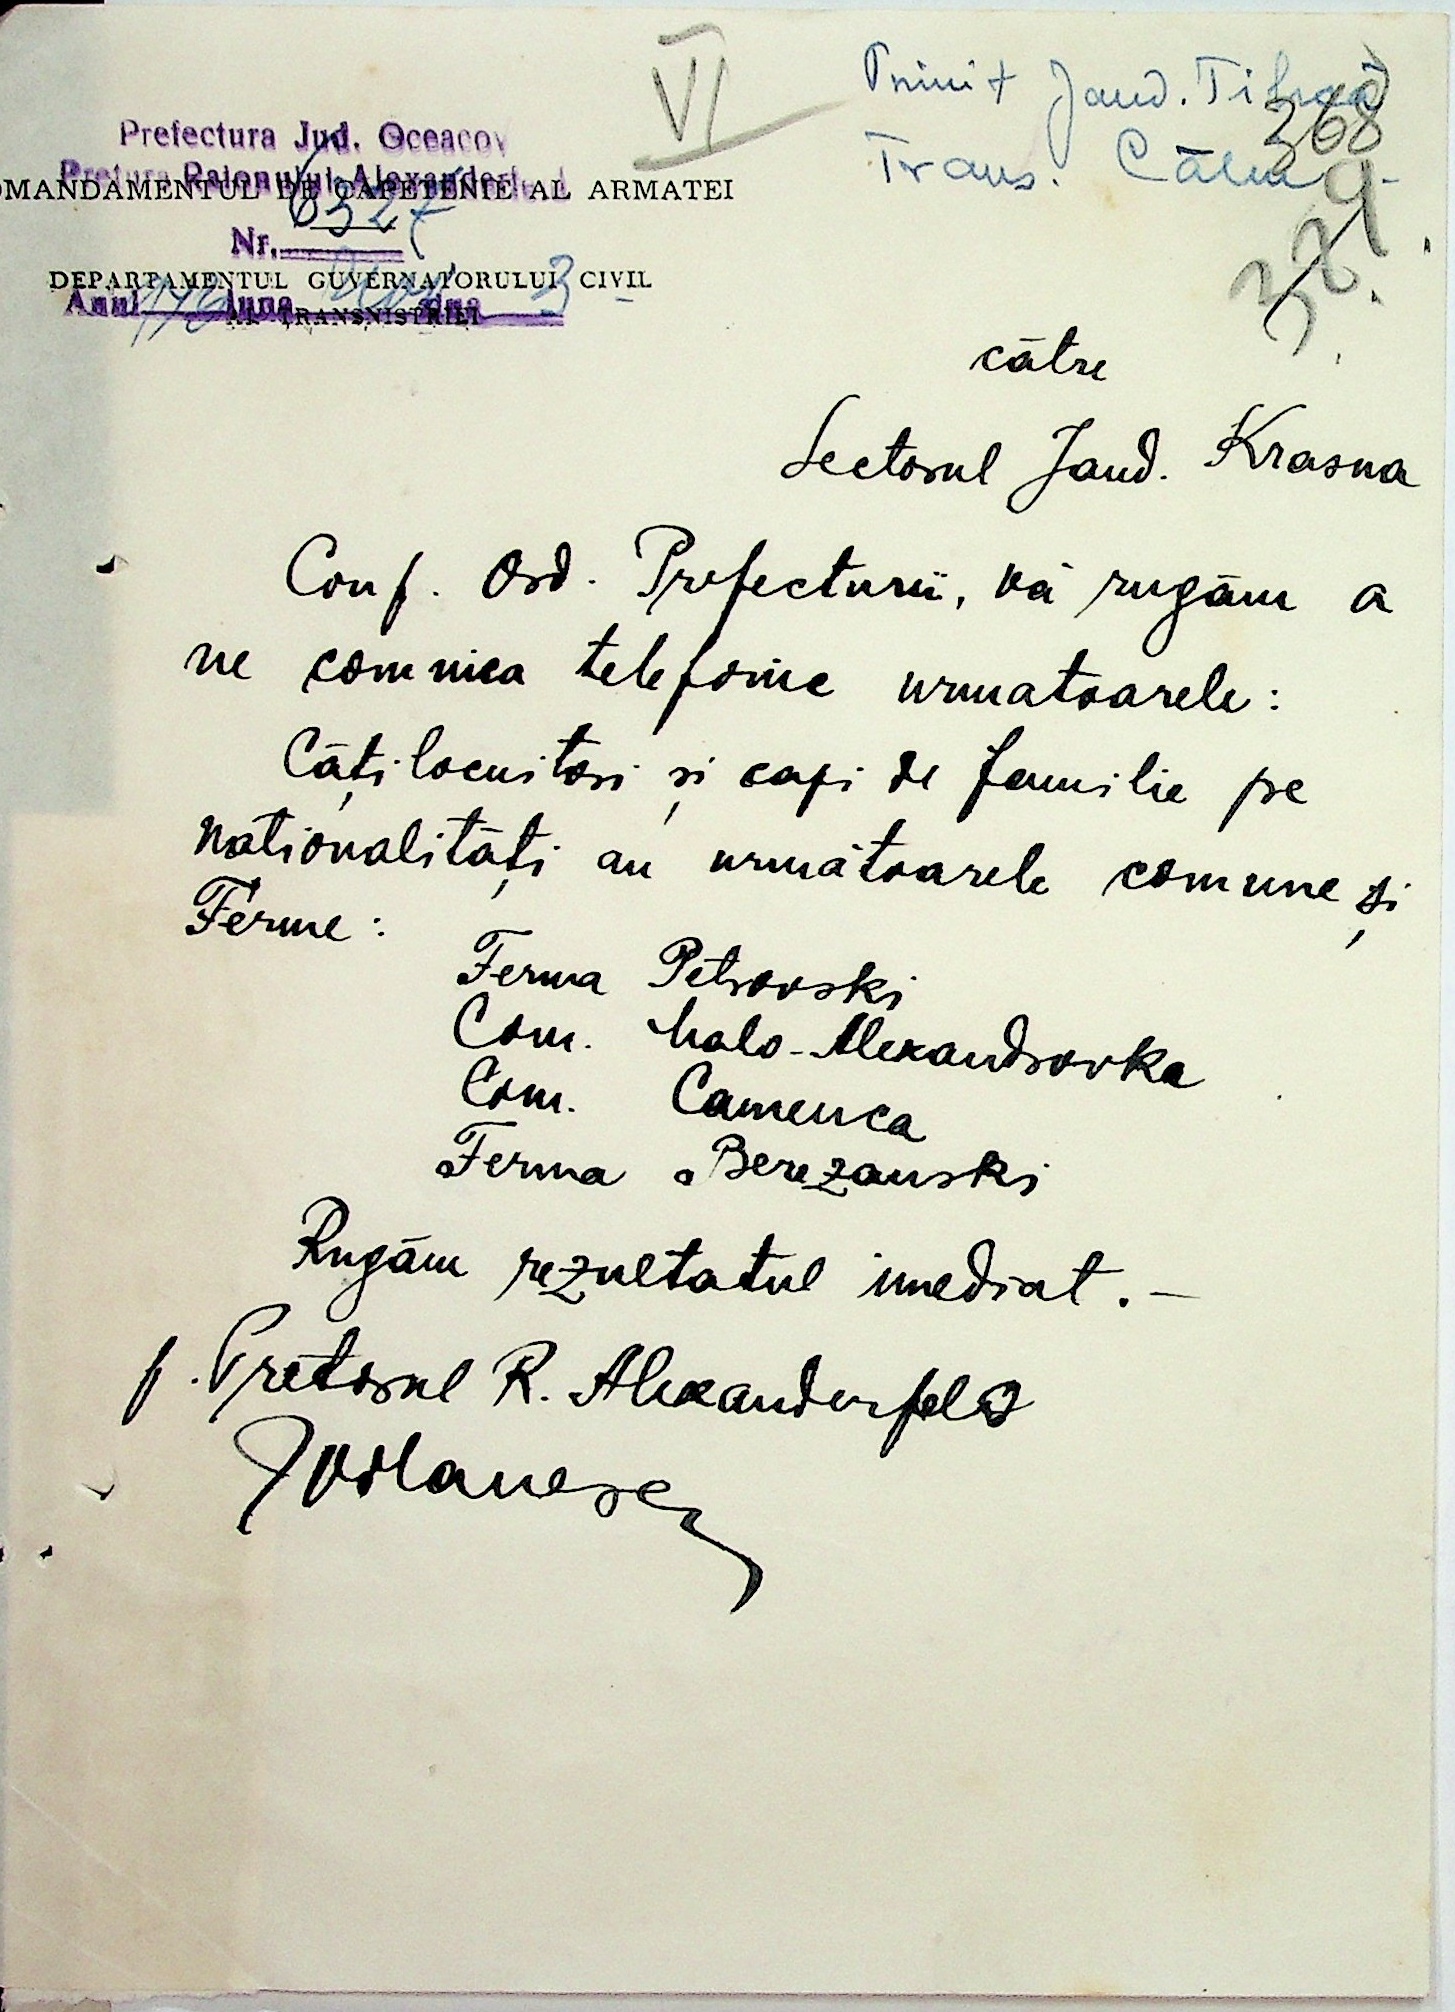 VI
Primit Jand.
368
Trans.
329
Prefectura Jud. Oceacov
Pretura Raionului Alexanderf
OMANDAMENTUL DE CAPETENIE AL ARMATEI
Nr. 6327
DEPARTAMENTUL GUVERNATORULUI CIVIL
Anul luna ziua 3
AL TRANSNISTRIEI
către
Sectorul Jand. Krasna
Conf. Ord. Prefecturii, vă rugăm a
ne comnica telefonic urmatoarele:
Câți locuitori și capi de familie pe
nationalități au următoarele comune și
Ferme:
Ferma Petrovski
Com. Malo-Alexandrovka
Com. Camenca
Ferma Berezanski
Rugăm rezultatul imediat.-
p. Pretorul R. Alexanderfeld